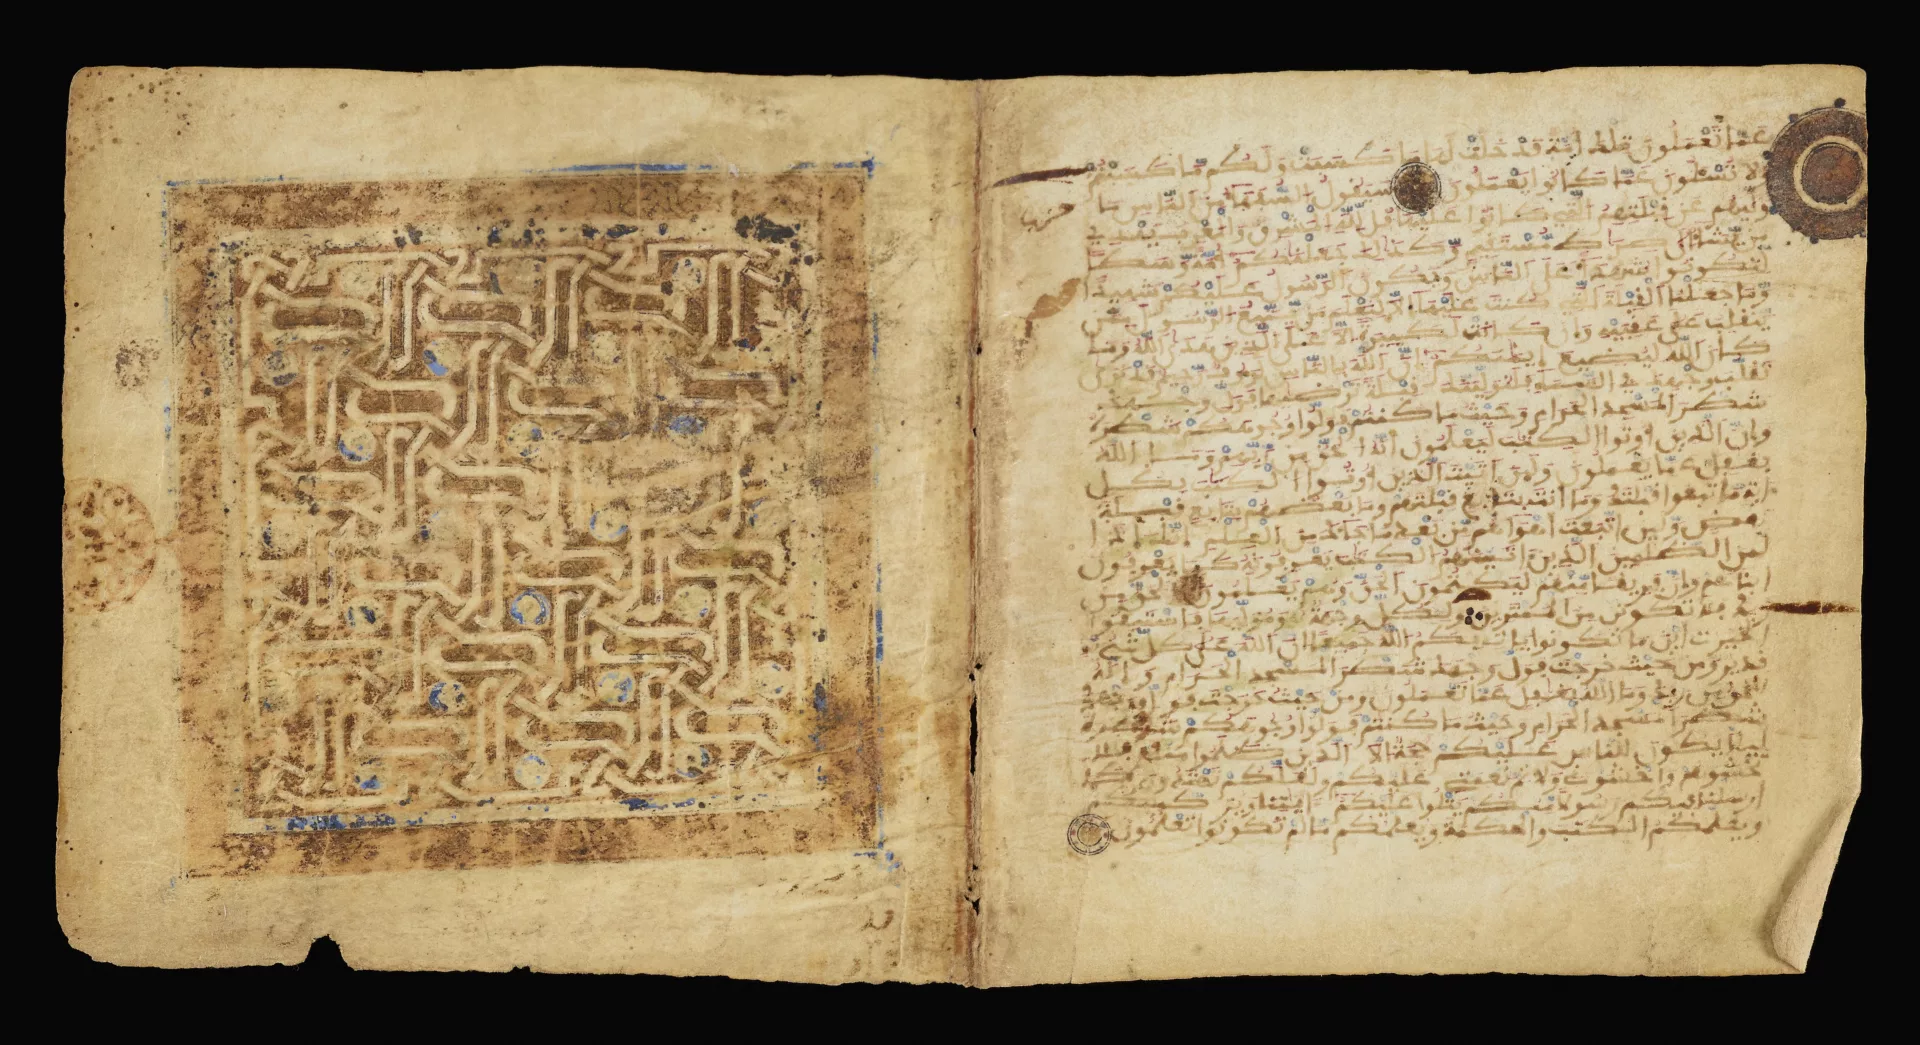 عما تعملون تلك امة قد خلت لها ما كسبت ولكم ما كسبتم
ولا تسئلون عما كانوا يعملون سيقول السفهاء من الناس ما
حزب
وليهم عن قبلتهم التي كانوا عليها قل لله المشرق والمغرب يهدي
من يشاء الى صراط مستقيم وكذلك جعلنكم امة وسطا
لتكونوا شهداء على الناس ويكون الرسول عليكم شهيدا
وما جعلنا القبلة التي كنت عليها الا لنعلم من يتبع الرسول ممن
ينقلب على عقبيه وان كانت لكبيرة الا على الذين هدى الله وما
كان الله ليضيع ايمنكم ان الله بالناس لرءوف رحيم قد نرى
تقلب وجهك في السماء فلنولينك قبلة ترضيها فول وجهك
شطر المسجد الحرام وحيث ما كنتم فولوا وجوهكم شطره
وان الذين اوتوا الكتب ليعلمون انه الحق من ربهم وما الله
بغفل عما يعملون ولئن اتيت الذين اوتوا الكتب بكل
اية ما تبعوا قبلتك وما انت بتابع قبلتهم وما بعضهم بتابع قبلة
بعض ولئن اتبعت اهواءهم من بعد ما جاءك من العلم انك اذا
لمن الظلمين الذين اتينهم الكتب يعرفونه كما يعرفون
ابناءهم وان فريقا منهم ليكتمون الحق وهم يعلمون الحق من
ربك فلا تكونن من الممترين ولكل وجهة هو موليها فاستبقوا
الخيرت اين ما تكونوا يات بكم الله جميعا ان الله على كل شيء
قدير ومن حيث خرجت فول وجهك شطر المسجد الحرام وانه
للحق من ربك وما الله بغفل عما تعملون ومن حيث خرجت فول وجهك
شطر المسجد الحرام وحيث ما كنتم فولوا وجوهكم شطره
ليلا يكون للناس عليكم حجة الا الذين ظلموا منهم فلا
تخشوهم واخشوني ولاتم نعمتي عليكم ولعلكم تهتدون كما
ارسلنا فيكم رسولا منكم يتلوا عليكم ايتنا ويزكيكم
ويعلمكم الكتب والحكمة ويعلمكم ما لم تكونوا تعلمون